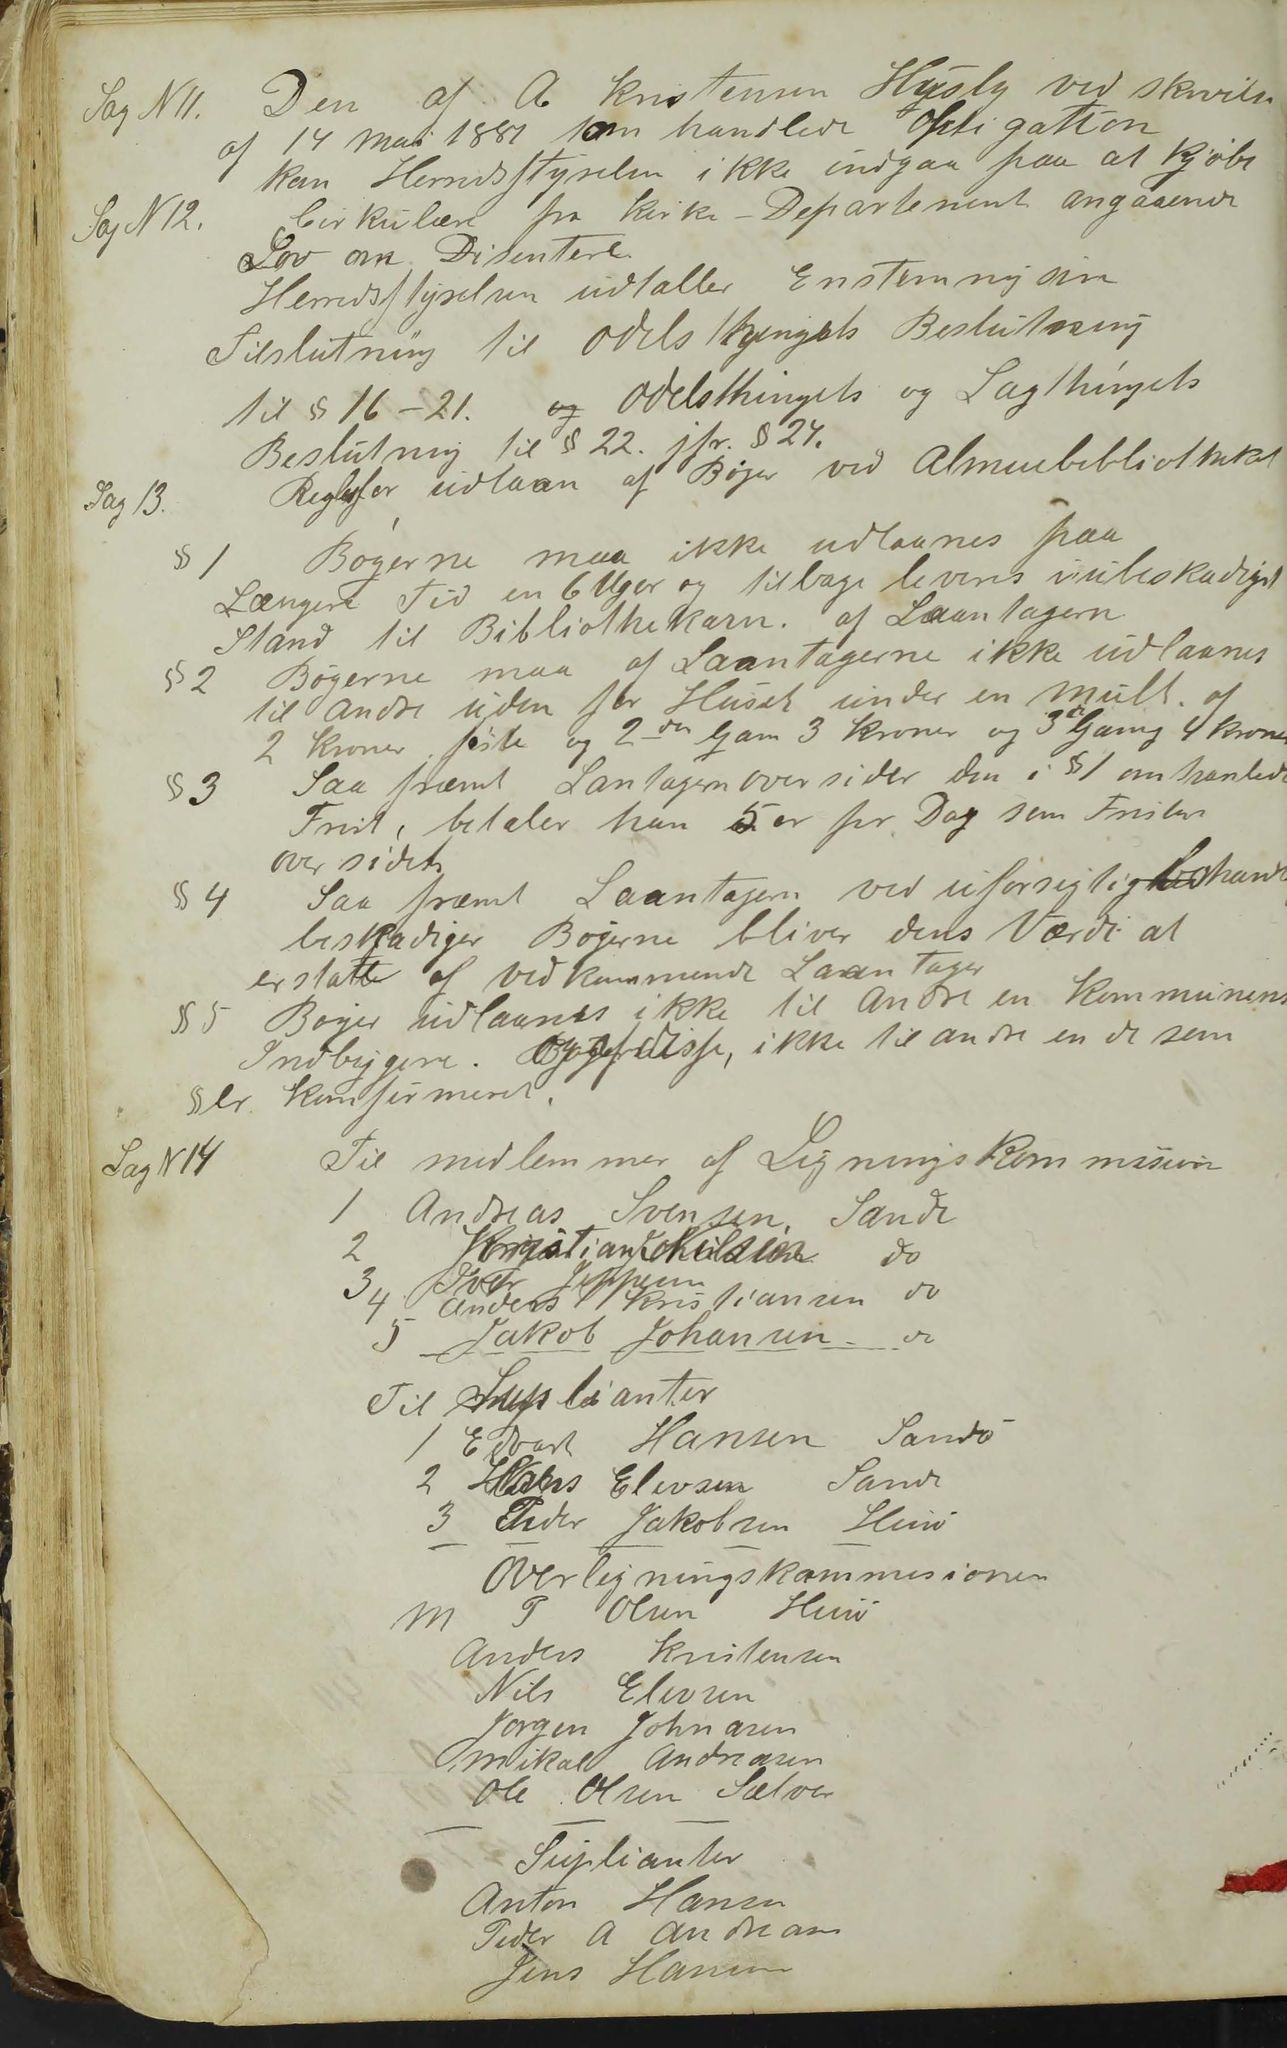 Sag N 11. Den af A Kristensen Hysly ved skrivelse
af 14 Mai 1881 om handlede Obligation
kan Herredsstyrelsen ikke indgaa paa at kjøbe
Sag N 12. Cirkulære fra Kirke-Departement angaaende
Lov om Disentere
Herredsstyrelsen udtaller Enstemmig sin
Tilslutning til Odelsthingets Beslutning
til § 16-21. og Odelsthingets og Lagthingets
Beslutning til § 22. jfr. § 24.
Sag 13. Regler for udlaan af Bøger ved Almuebibliotheket
§ 1 Bøgerne maa ikke udlaanes paa
Længere Tid en 6 Uger og tilbage leveres i ubeskadiget
Stand til Bibliothekarn. af Laantagern
§ 2 Bøgerne maa af Laantagerne ikke udlaanes
til andre uden for Huset under en Mult. af
2 Kroner første og 2den Gam 3 kroner og 3die Gamg 4 kroner
§ 3 Saa fræmt Lantagern oversider den i § 1 omhanlede
Frist, betaler han 5 ør per Dag som Fristen
over sides
§ 4 Saa fræmt Laantagern ved uforsigtig behandl
beskadiger Bøgerne bliver dens Værdi at
erstatte af vedkommende Laantager
§ 5 Bøger udlaanes ikke til Andre en Kommunens
Indbyggere. Og af disse, ikke til andre en de som
§ er konfirmeret.
Sag N 14 Til medlemmer af Lignings Kommission
1 Andreas Svensen, Sande
2 Kristian do
3 Iver Jeppesen
4 Anders Kristiansen do
5 Jakob Johansen do
Til Suplianter
1 Edvart Hansen Sandø
2 Hans Elevsen Sande
3 Peder Jakobsen Husø
Overligningskommisionen
M P Olsen Husø
Anders Kristensen
Nils Elevsen
Jørgen Johnasen
Mikal Andreasen
Ole Olsen Sælver
Suplianter
Anton Hansen
Peder A Andreasen
Jens Hansen